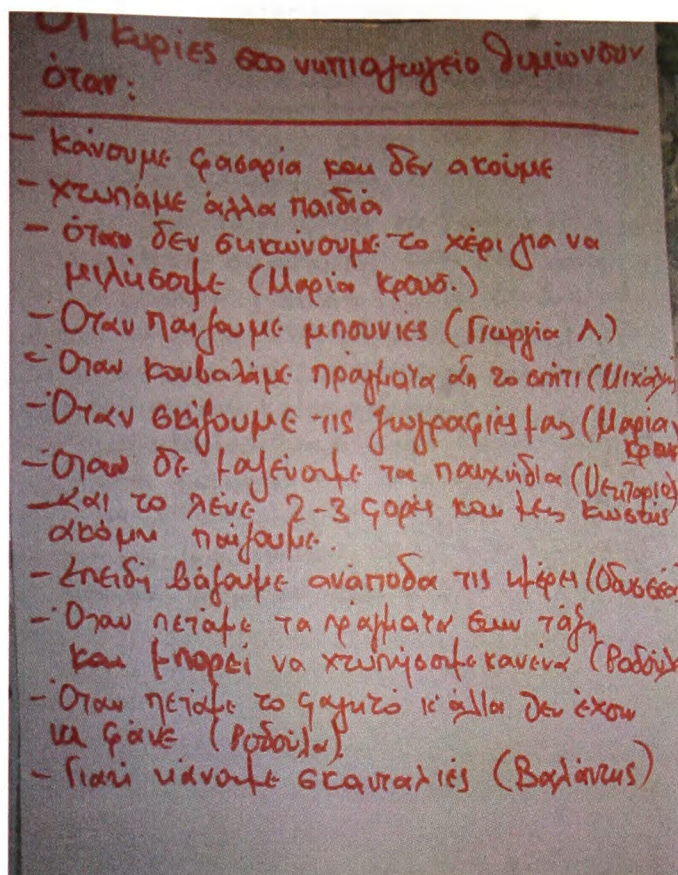 Οι κυρίες στο νηπιαγωγείο θυμώνουν
όταν:
- Κάνουμε φασαρία και δεν ακούμε
- χτυπάμε άλλα παιδιά
- όταν δεν σηκώνουμε το χέρι για να
μιλήσουμε (Μαρία Κρουσ.)
- Όταν παίζουμε μπουνιές (Γιωργία Λ)
- Όταν κουβαλάμε πράγματα απ το σπίτι (Μιχάλης
- Όταν σκίζουμε τις ζωγραφιές μας (Μαρία
Κρουσ
- Όταν δε μαζεύουμε τα παιχνίδια (Νεκταρία)
- Και το λένε 2-3 φορές και μεις Κωστής
ακόμη παίζουμε.
- Επειδή βάζουμε ανάποδα τις μέρες (Οδυσσέας
- Όταν πετάμε τα πράγματα στην τάξη
και μπορεί να χτυπήσουμε κανένα (Ροδούλα
- Όταν πετάμε το φαγητό κ' άλλοι δεν έχουν
να φάνε (Ροδούλα)
- Γιατί κάνουμε σκανταλιές (Βαλάντης)